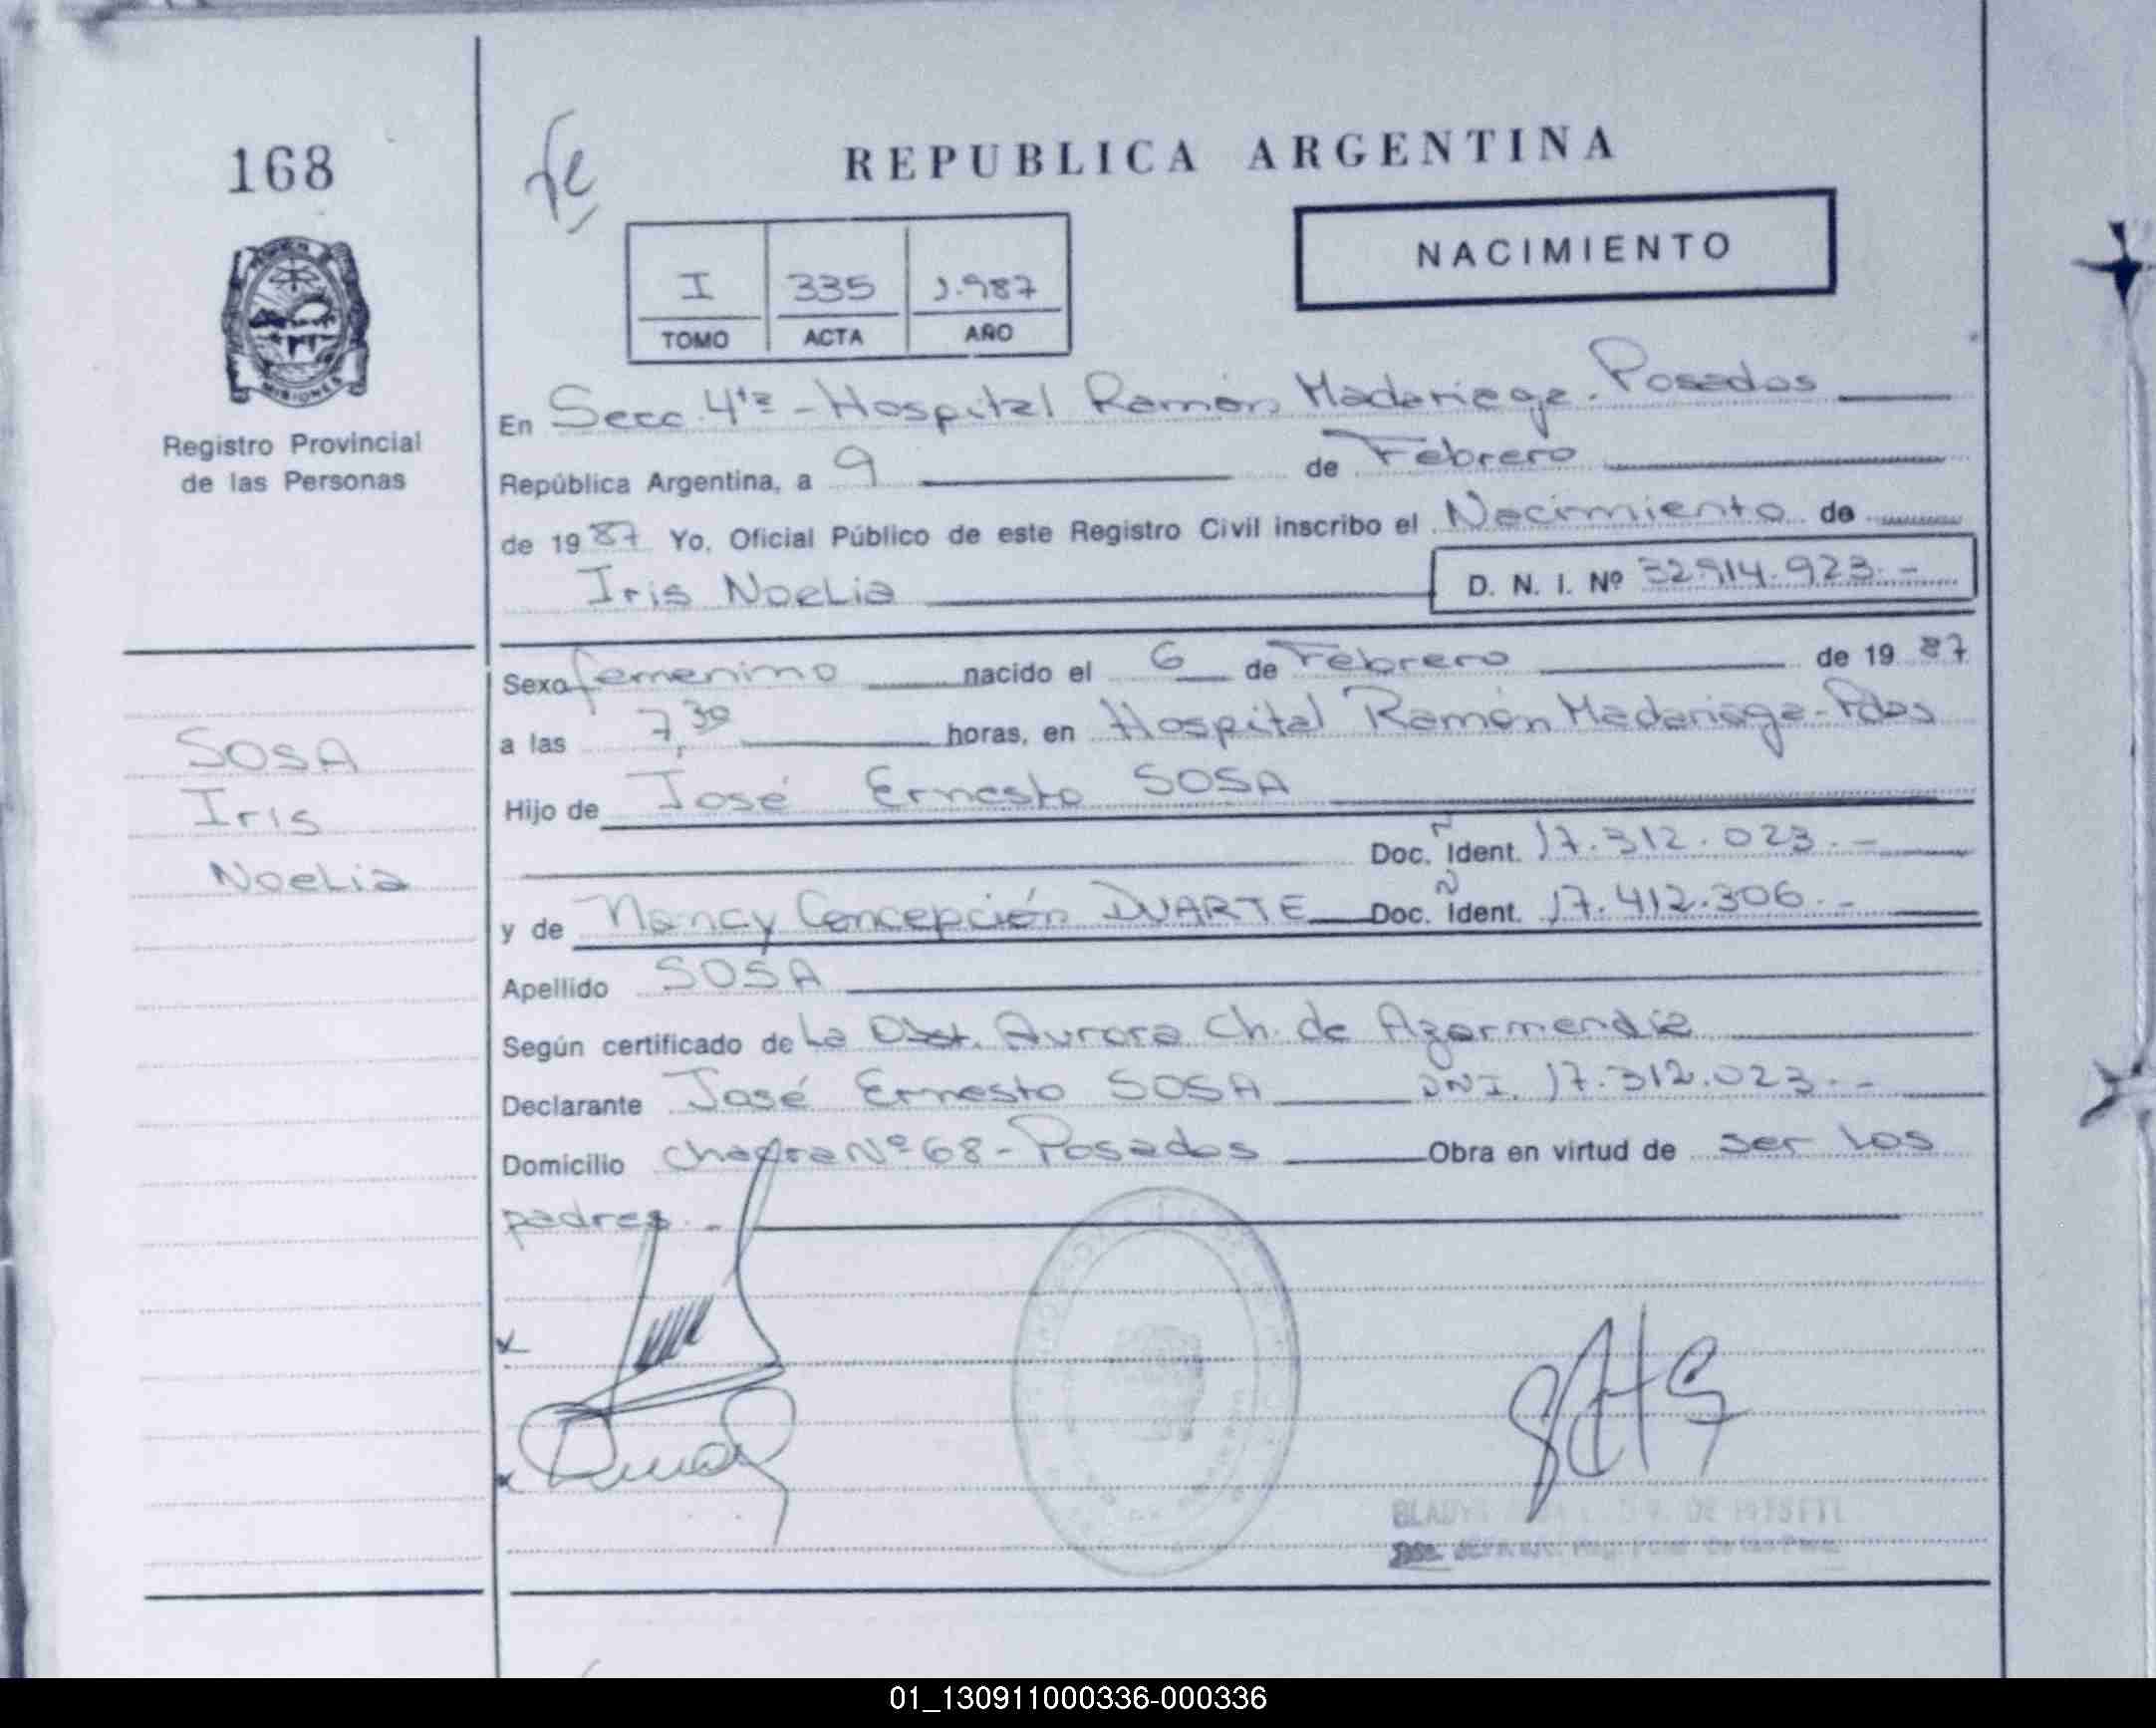 168
fe
REPUBLICA ARGENTINA
NACIMIENTO
I 335 1.987
TOMO ACTA AÑO
MISIONES
Registro Provincial
de las Personas
En Secc. 4ta - Hospital Ramón Madariaga - Posadas
República Argentina, a 9 de Febrero
de 1987 Yo, Oficial Público de este Registro Civil inscribo el Nacimiento de
Iris Noelia D. N. I. Nº 32.914.923.-
Sexo femenino nacido el 6 de Febrero de 1987
a las 7,30 horas, en Hospital Ramón Madariaga - Pdas
Hijo de José Ernesto SOSA
Doc. Ident. 17.312.023.-
y de Nancy Concepción DUARTE Doc. Ident. 17.412.306.-
Apellido SOSA
Según certificado de La Obst. Aurora Ch. de Azarmendia
Declarante José Ernesto SOSA DNI. 17.312.023.-
Domicilio chacra Nº 68 - Posadas Obra en virtud de ser los
padres.-
SOSA
Iris
Noelia
01_130911000336-000336